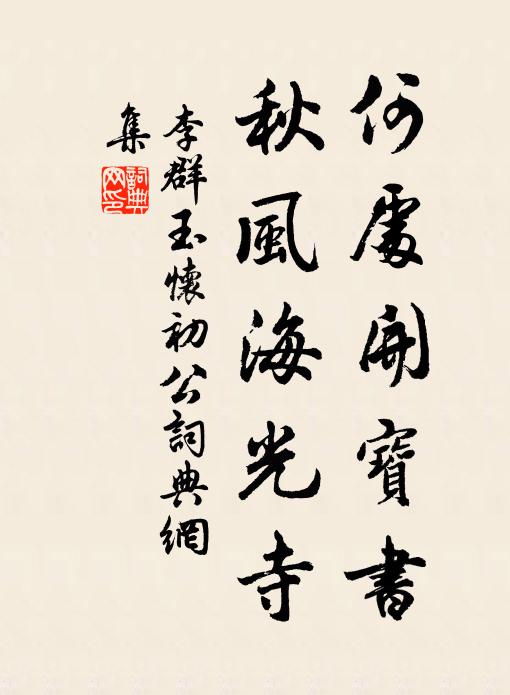 何處開寶書
秋風海光寺
李群玉懷初公詞典網
集
詞典網印